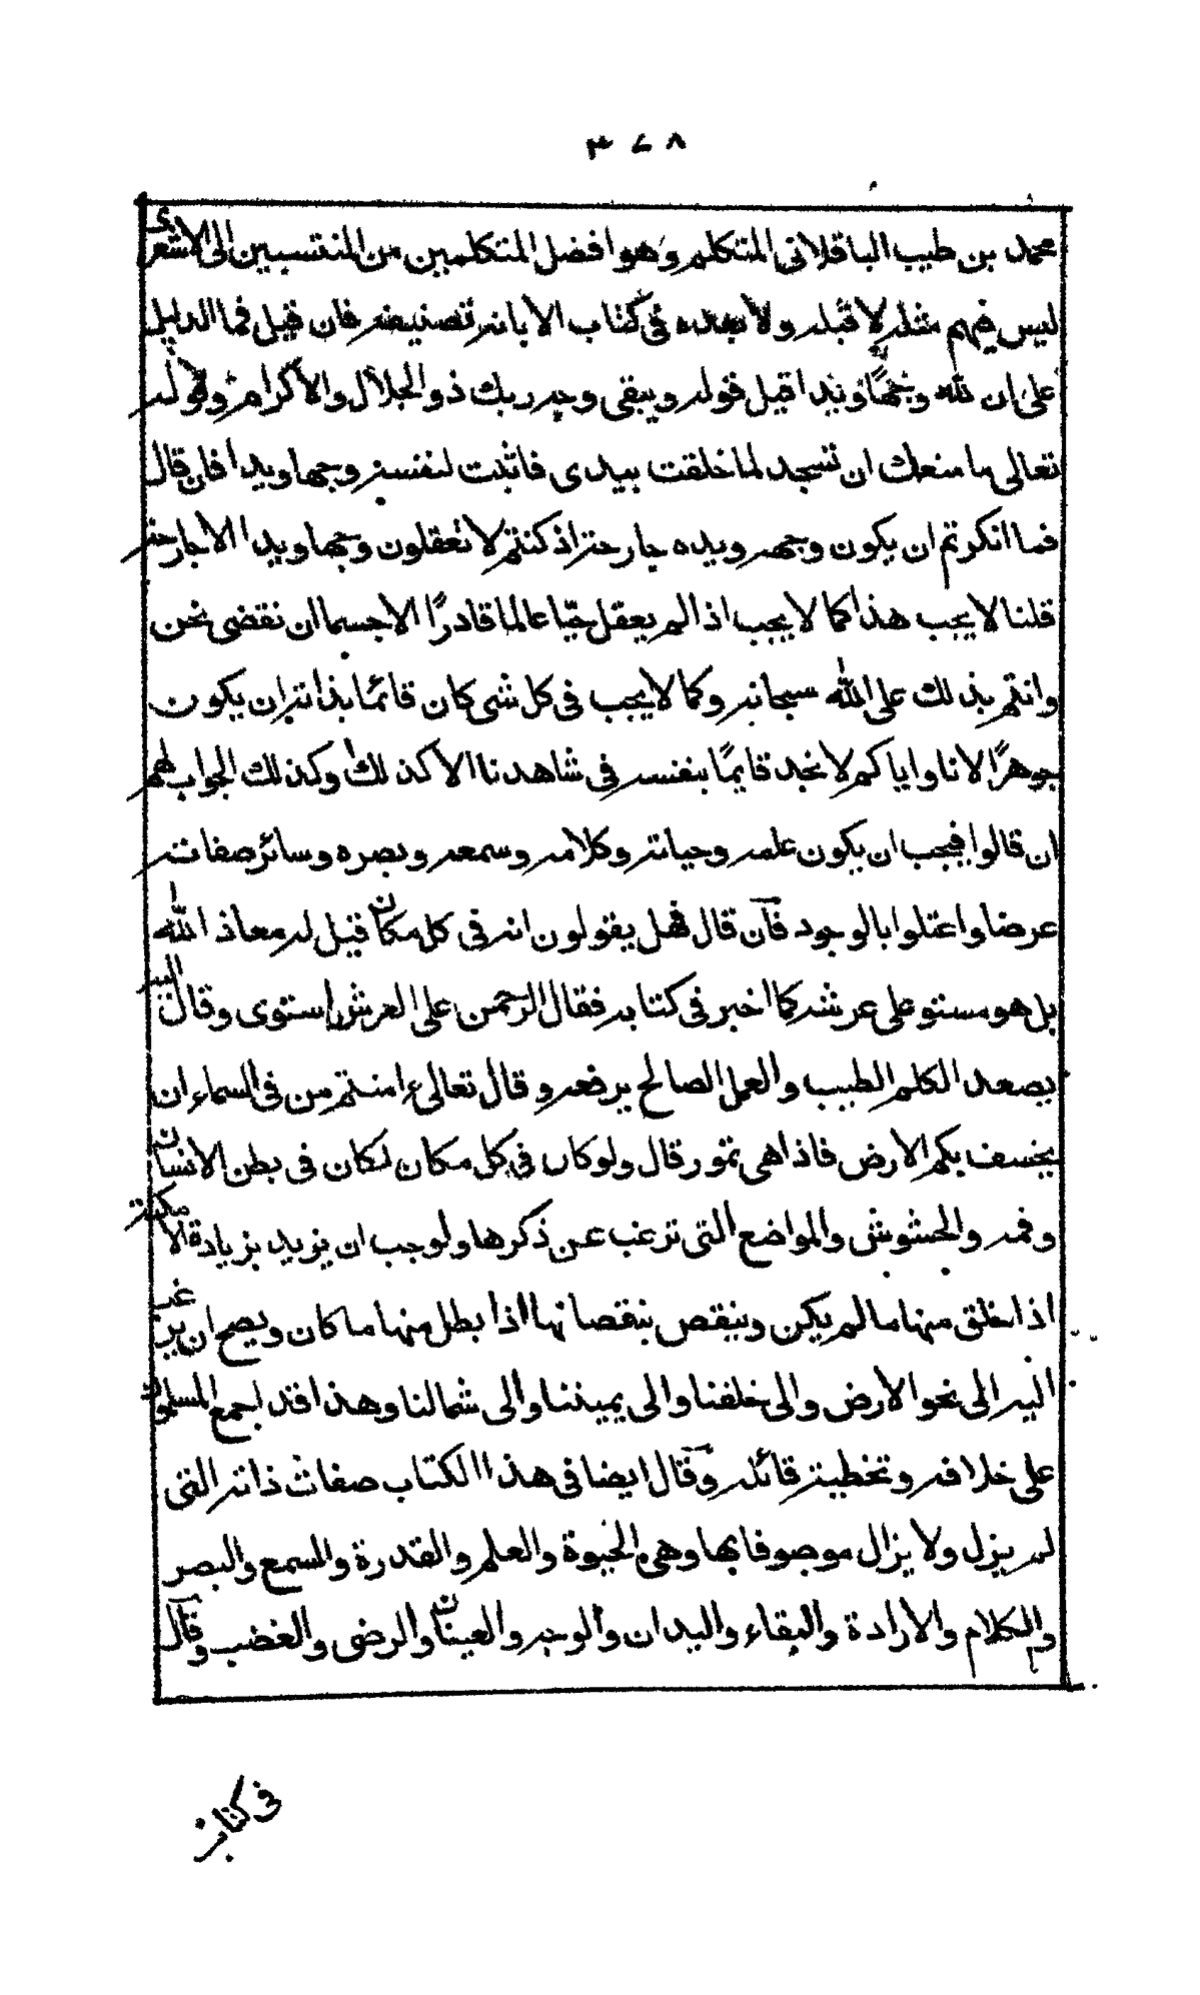 ٣٧٨
محمد بن طيب الباقلانى المتكلم وهو افضل المتكلمين من المنتسبين الى الاشعرى
ليس فيهم مثله لا قبله ولا بعده فى كتاب الابانه تصنيفه فان قيل فما الدليل
على ان لله وجهًا ويدا قيل قوله ويبقى وجه ربك ذو الجلال والاكرام وقوله
تعالى ما منعك ان تسجد لما خلقت بيدى فاثبت لنفسه وجها ويدا فان قال
فما انكرتم ان يكون وجهه ويده جارحة اذ كنتم لا تعقلون وجها ويدا الا جارحة
قلنا لا يجب هذا كما لا يجب اذا لم يعقل حيّا عالما قادرًا الا جسما ان نقضى نحن
وانتم بذلك على الله سبحانه وكما لا يجب فى كل شى كان قائما بذاته ان يكون
جوهرًا لانا واياكم لا نجد قايمًا بنفسه فى شاهدنا الا كذلك وكذلك الجواب لهم
ان قالوا فيجب ان يكون علمه وحياته وكلامه وسمعه وبصره وسائر صفاته
عرضا واعتلوا بالوجود فان قال فهل يقولون انه فى كل مكان قيل له معاذ الله
بل هو مستو على عرشه كما اخبر فى كتابه فقال الرحمن على العرش استوى وقال اليه
يصعد الكلم الطيب والعمل الصالح يرفعه وقال تعالى ءامنتم من فى السماء ان
يخسف بكم الارض فاذا هى تمور قال ولو كان فى كل مكان لكان فى بطن الانسان
وفمه والحشوش والمواضع التى ترغب عن ذكرها ولوجب ان يزيد بزيادة الامكنة
اذا خلق منها ما لم يكن وينقص بنقصانها اذا بطل منها ما كان ويصح ان يرغب
اليه الى نحو الارض والى خلفنا والى يميننا والى شمالنا وهذا قد اجمع المسلمون
على خلافه وتخطية قائله وقال ايضا فى هذا الكتاب صفات ذاته التى
لم يزل ولا يزال موصوفا بها وهى الحيوة والعلم والقدرة والسمع والبصر
والكلام والارادة والبقاء واليدان والوجه والعينان والرضى والغضب وقال
فى كتابه